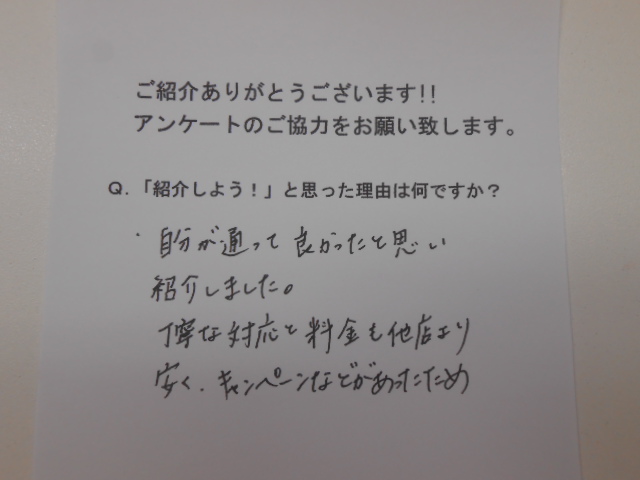 ご紹介ありがとうございます!!
アンケートのご協力をお願い致します。
Q.「紹介しよう！」と思った理由は何ですか？
・自分が通って良かったと思い
紹介しました。
丁寧な対応と料金も他店より
安く、キャンペーンなどがあったため